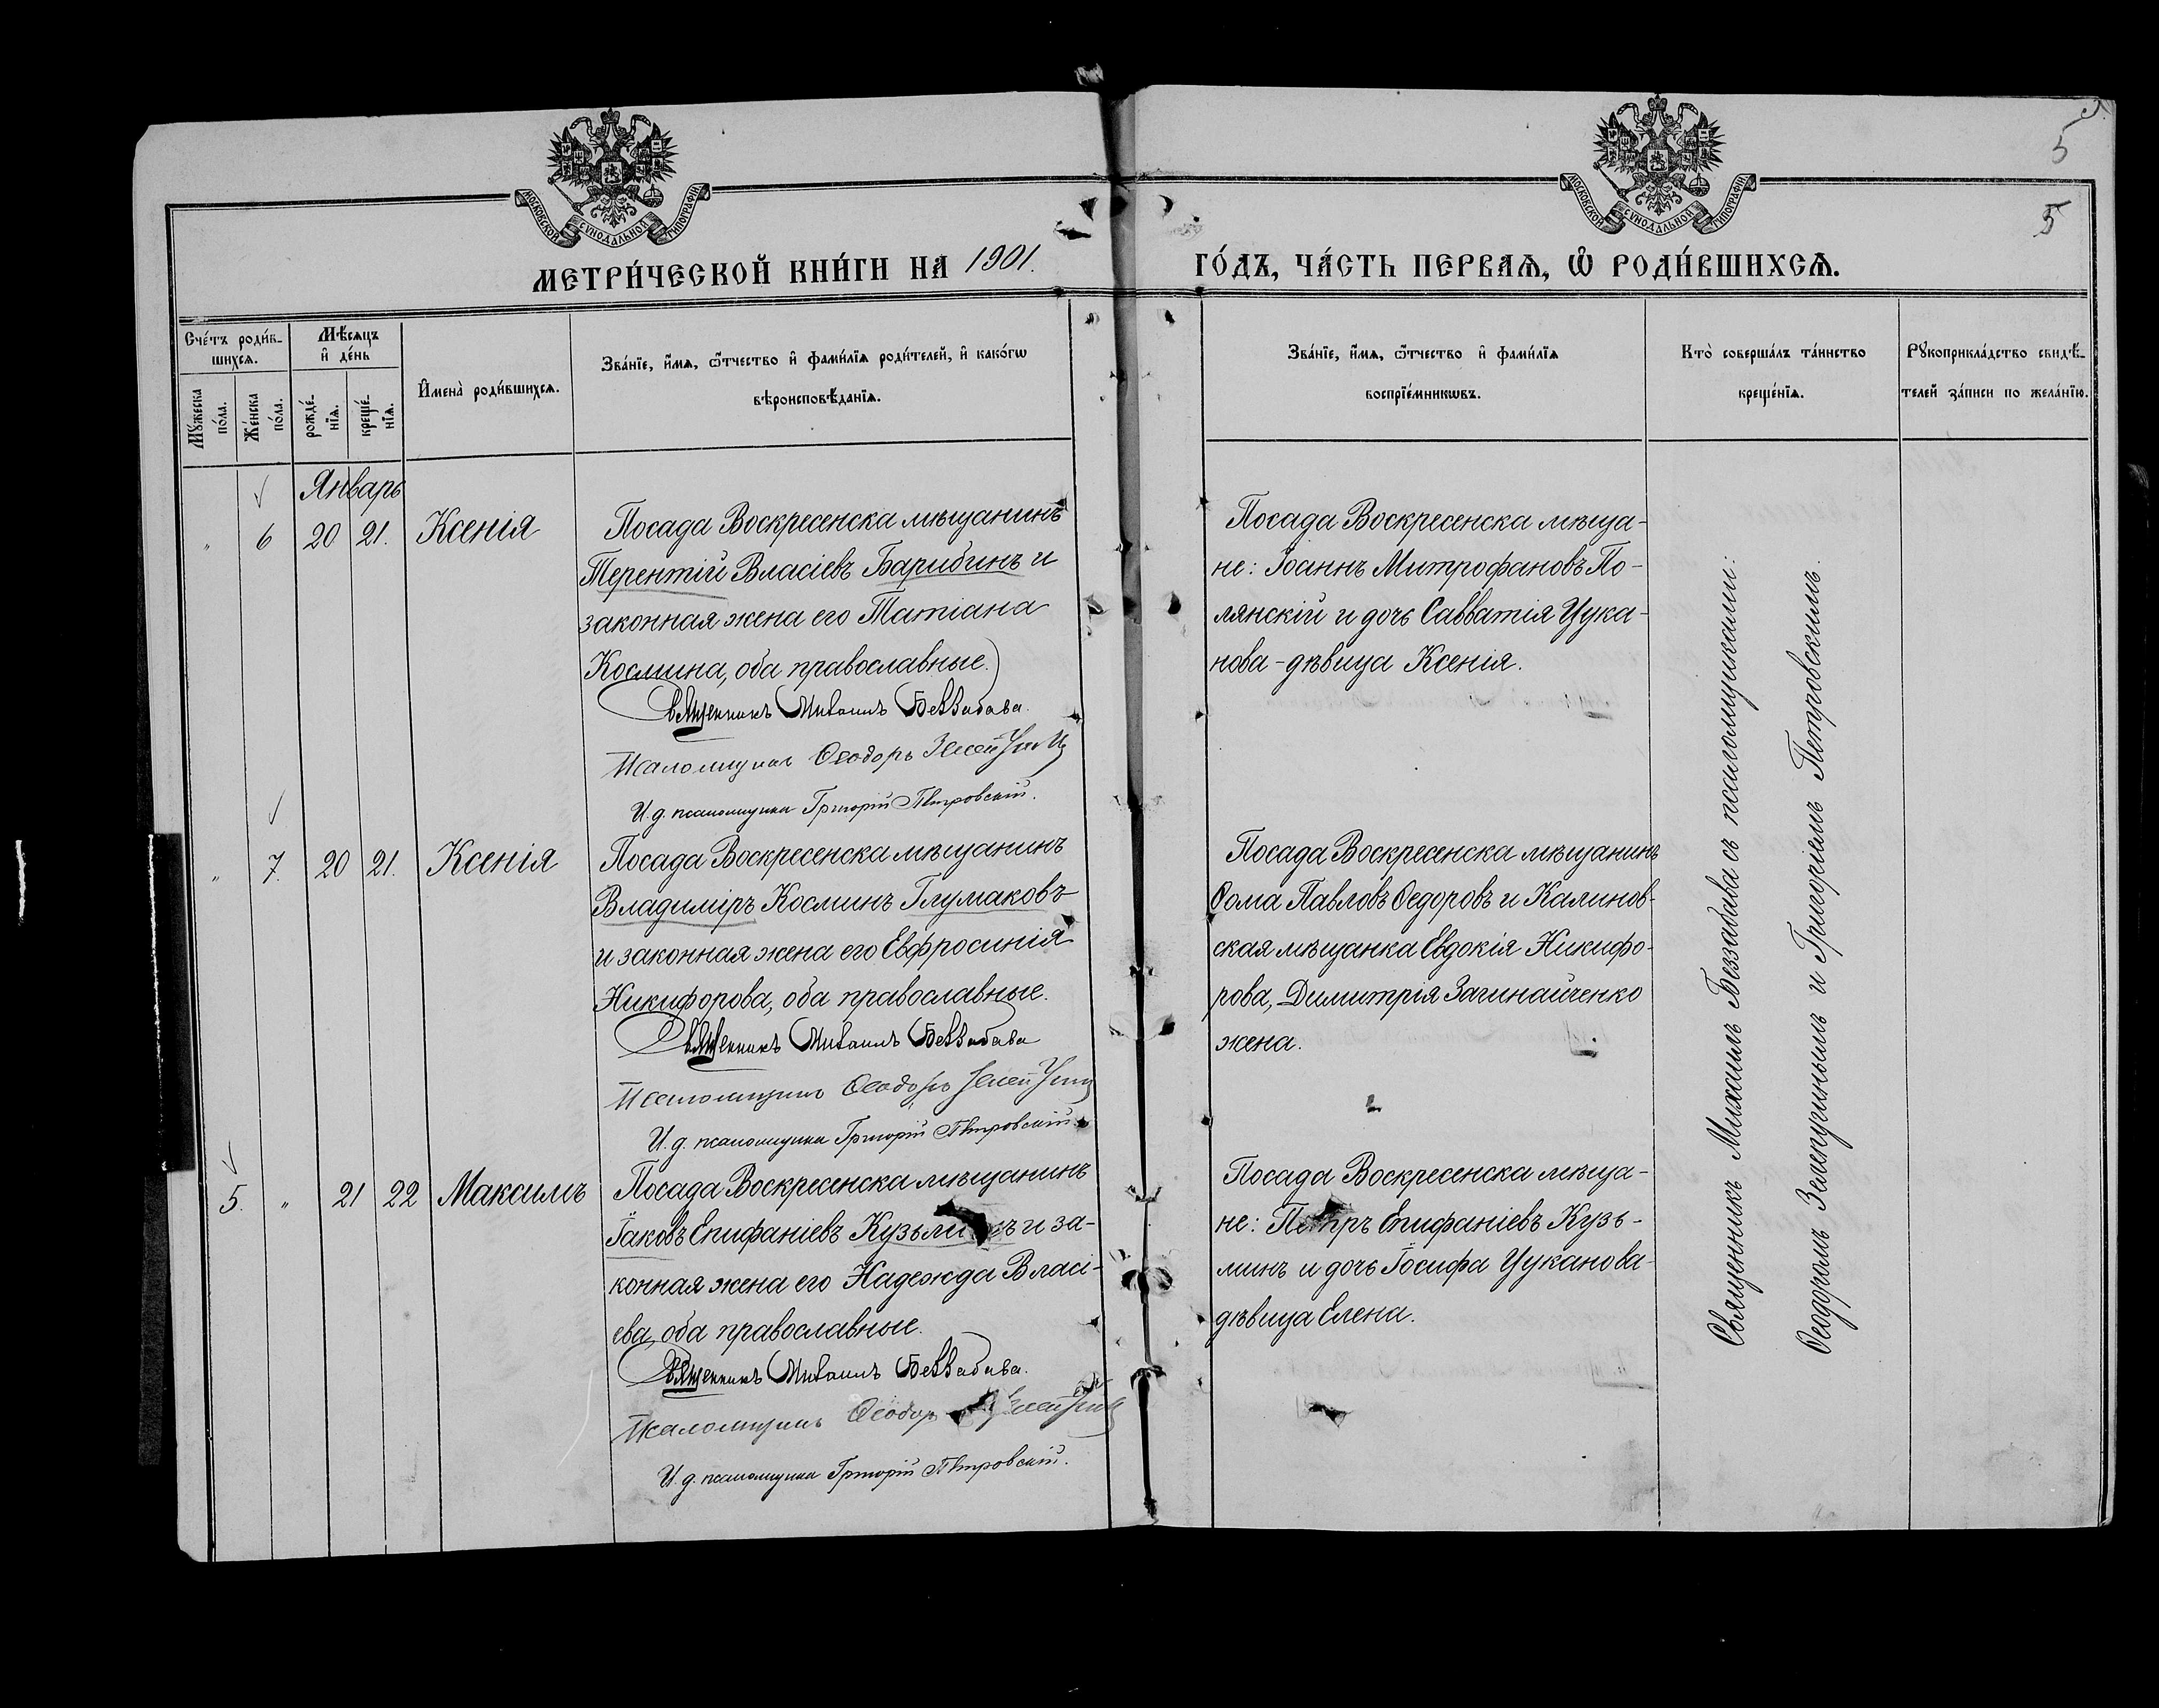 5
5
МОСКОВСКОЙ СѴНОДАЛЬНОЙ ТИПОГРАФІИ
МОСКОВСКОЙ СѴНОДАЛЬНОЙ ТИПОГРАФІИ
МЕТРИ́ЧЕСКОЙ КНИ́ГИ НА 1901. ГО́ДЪ, ЧА́СТЬ ПЕРВАѦ, Ѡ РОДИ́ВШИХСѦ.
Сче́тъ роди́в-
шихсѧ.
Мꙋ́жеска
по́ла.
Же́нска
по́ла.
Мѣ́сѧцъ
и҆ де́нь
рожде́-
нїѧ.
креще́-
нїѧ.
И҆мена̀ роди́вшихсѧ.
Зва́нїе, и҆́мѧ, ѻ҆́тчество и҆ фами́лїѧ роди́телей, и҆ како́гѡ
вѣроисповѣ́данїѧ.
Зва́нїе, и҆́мѧ, ѻ҆́тчество и҆ фами́лїѧ
воспрїе́мникѡвъ.
Кто̀ соверша́лъ та́инство
креще́нїѧ.
Рꙋкоприкла́дство свидѣ́-
телей за́писи по жела́нїю.
Январь
" 6 20 21. Ксенія
Посада Воскресенска мѣщанинъ
Терентій Власіевъ Барибинъ и
законная жена его Татіана
Космина, оба православные.
Священникъ Михаилъ Беззабава.
Псаломщикъ Ѳеодоръ
И. д. псаломщика Григорій Петровскій.
Посада Воскресенска мѣща-
не: Іоаннъ Митрофановъ По-
лянскій и дочь Савватія Цука-
нова - дѣвица Ксенія.
" 7. 20 21. Ксенія
Посада Воскресенска мѣщанинъ
Владиміръ Косминъ Глумаковъ
и законная жена его Евфросинія
Никифорова, оба православные.
Священникъ Михаилъ Беззабава
Псаломщикъ Ѳеодоръ
И. д. псаломщика Григорій Петровскій.
Посада Воскресенска мѣщанинъ
Ѳома Павловъ Ѳедоровъ и Калинов-
ская мѣщанка Евдокія Никифо-
рова, Димитрія Загинайченко
жена.
5. " 21 22 Максимъ
Посада Воскресенска мѣщанинъ
Іаковъ Епифаніевъ Кузьминъ и за-
конная жена его Надежда Власі-
ева, оба православные.
Священникъ Михаилъ Беззабава.
Псаломщикъ Ѳеодоръ
И. д. псаломщика Григорій Петровскій.
Посада Воскресенска мѣща-
не: Петръ Епифаніевъ Кузь-
минъ и дочь Іосифа Цуканова-
дѣвица Елена.
Священникъ Михаилъ Беззабава съ псаломщиками:
Ѳеодоромъ и Григоріемъ Петровскимъ.